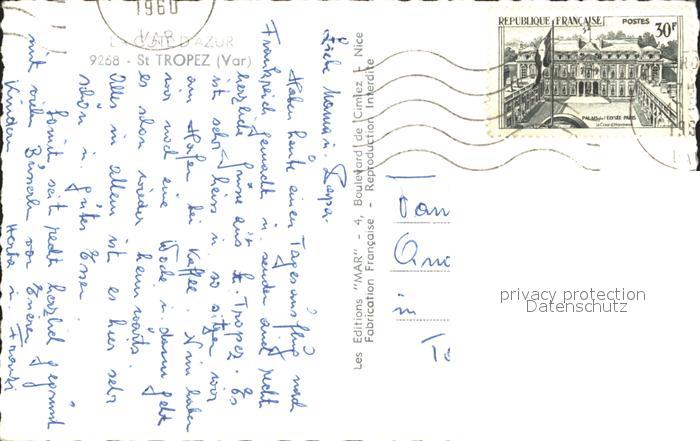 1960
VAR
LA COTE D'AZUR
9268 - St TROPEZ (Var)
Liebe Mama u. Papa
Haben heute einen Tagesausflug nach
Frankreich gemacht u. senden Euch recht
herzliche Grüsse aus St. Tropez. Es
ist sehr heiss u. so sitzen wir
am Hafen bei Kaffee. Nun haben
wir noch eine Woche u. dann geht
es schon wieder heimwärts.
Alles in allem ist es hier sehr
schön u. gutes Essen.
Somit seit recht herzlich gegrüsst
mit vielen Busserln von Euren
Kindern Herta u. Franzi
Les Editions "MAR" - 4, Boulevard de Cimiez - Nice
Fabrication Française - Reproduction Interdite
REPUBLIQUE FRANÇAISE POSTES
30F
PALAIS DE L'ELYSÉE PARIS
La Cour d'Honneur
Fam
in
privacy protection
Datenschutz